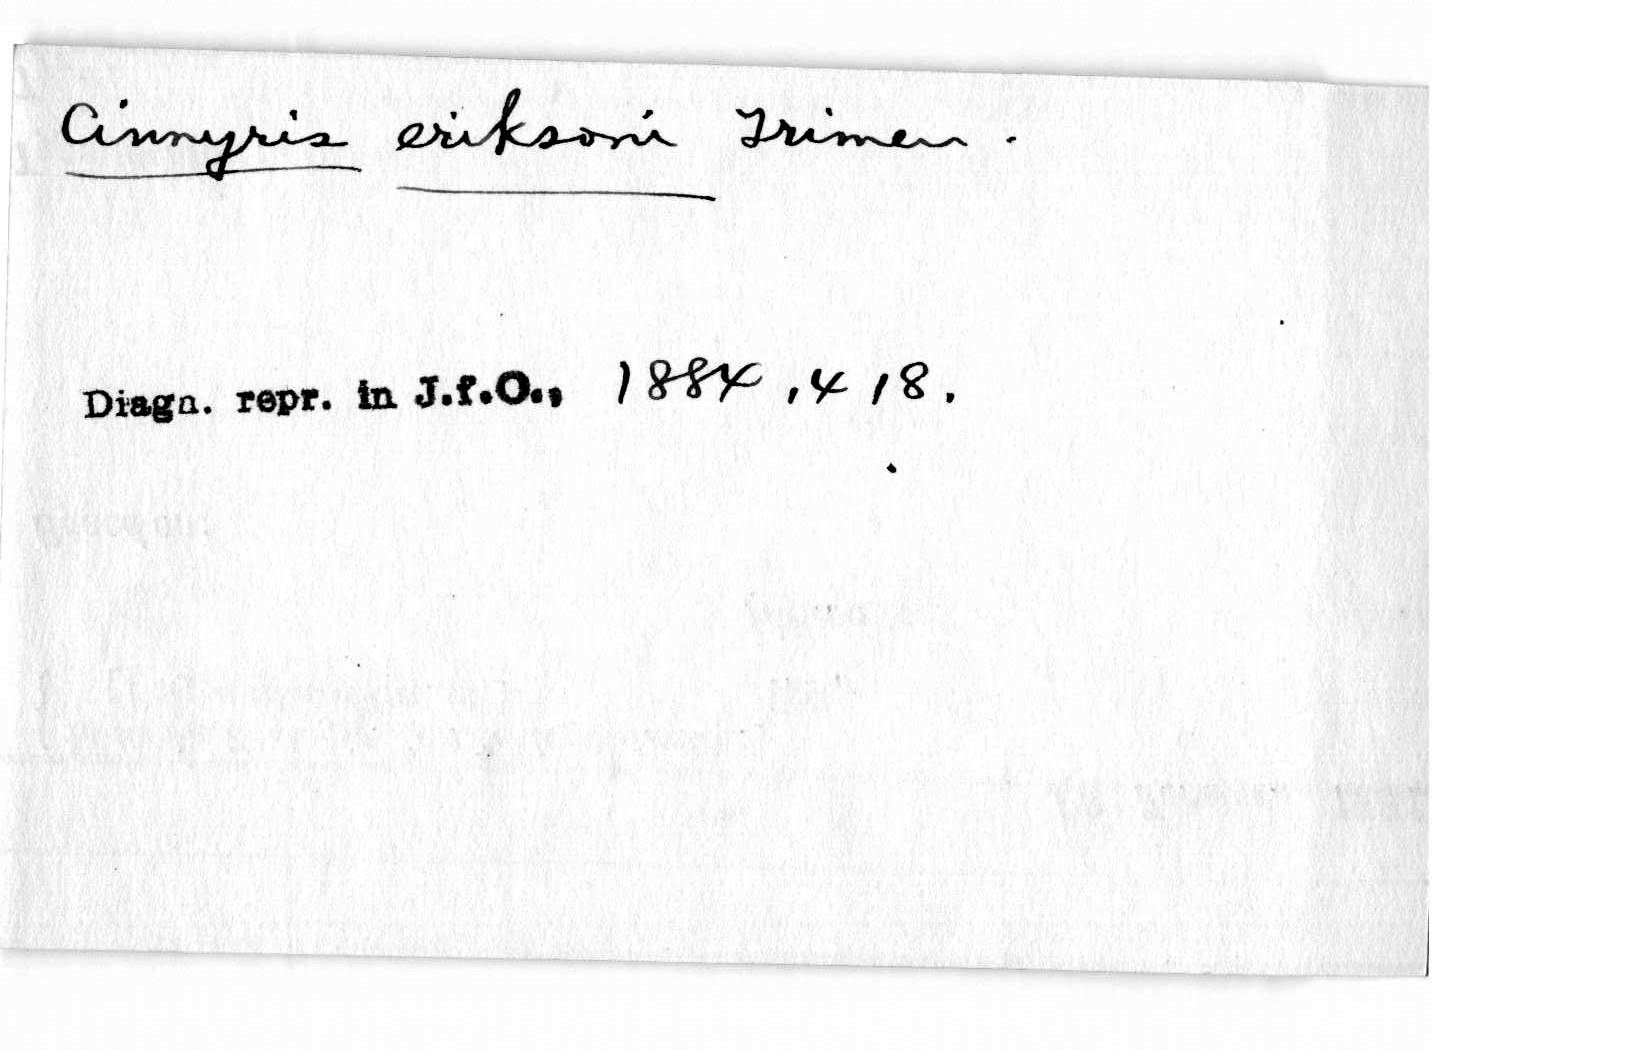 Cinnyris eriksoni Trimen.
Diagn. repr. in J.f.O., 1884, 418.